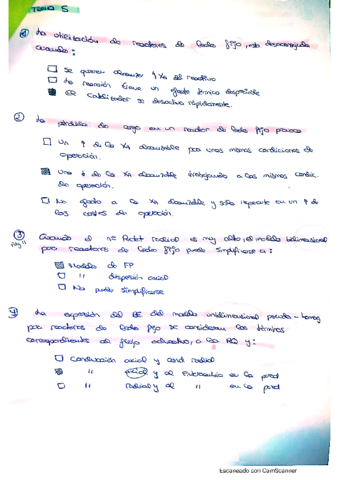 TEMA 5
① La utilización de reactores de lecho fijo está desaconsejada
cuando:
□ Se quieren obtener ↑ XA del reactivo
□ La reacción tiene un efecto térmico despreciable
■ El catalizador se desactiva rápidamente.
② La pérdida de carga en un reactor de lecho fijo provoca
□ Un ↑ de la XA alcanzable por unas mismas condiciones de
operación.
■ Una ↓ de la XA alcanzable trabajando a las mismas condic.
de operación.
□ No afecta a la XA alcanzable y sólo repercute en un ↑ de
los costes de operación.
③ Cuando el nº Peclet radial es muy alto, el modelo bidimensional
pág 11 para reactores de lecho fijo puede simplificarse a:
■ Modelo de FP
□ " dispersión axial
□ No puede simplificarse
④ La expresión del BE del modelo unidimensional pseudo-homog
para reactores de lecho fijo se consideran los términos
correspondientes al flujo advectivo, a la RQ y:
□ Conducción axial y cond radial
■ " axial y el intercambio en la pared
□ " radial y el " en la pared
Escaneado con CamScanner